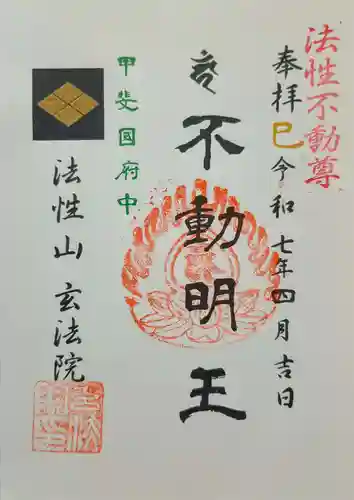 法性不動尊
奉拝 巳 令和七年四月吉日
不動明王
甲斐国府中
法性山 玄法院